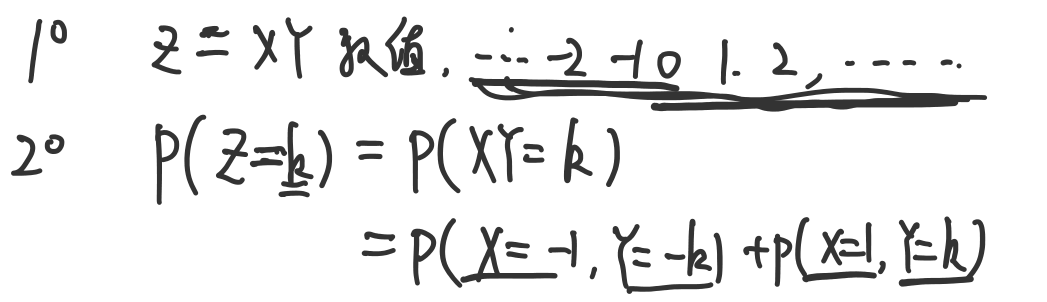 1° Z = XY 取值, ... -2 -1 0 1. 2, .....
2° P(Z=k) = P(XY=k)
= P(X=-1, Y=-k) + P(X=1, Y=k)